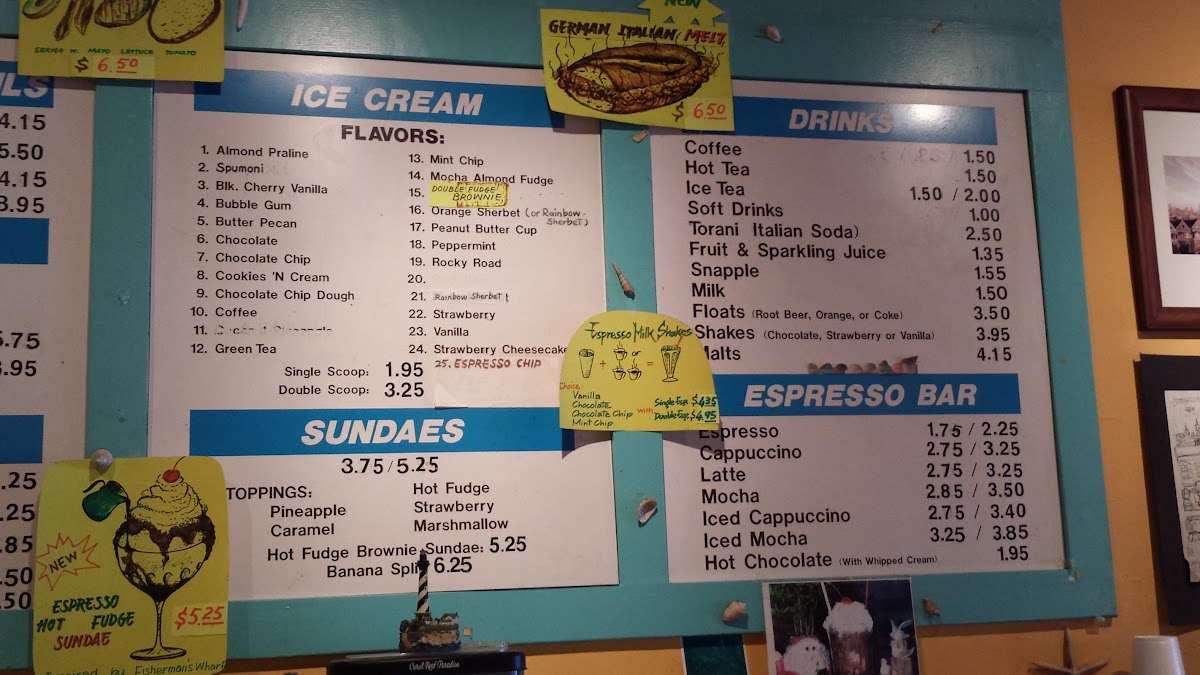 SERVED W. MAYO LETTUCE TOMATO
$ 6.50
4.15
5.50
4.15
3.95
5.75
3.95
.25
.25
.85
.50
.50
NEW
GERMAN ITALIAN MELT
$ 6.50
ICE CREAM
FLAVORS:
1. Almond Praline
2. Spumoni
3. Blk. Cherry Vanilla
4. Bubble Gum
5. Butter Pecan
6. Chocolate
7. Chocolate Chip
8. Cookies 'N Cream
9. Chocolate Chip Dough
10. Coffee
11.
12. Green Tea
13. Mint Chip
14. Mocha Almond Fudge
15. DOUBLE FUDGE
BROWNIE
16. Orange Sherbet (or Rainbow-
Sherbet)
17. Peanut Butter Cup
18. Peppermint
19. Rocky Road
20.
21. Rainbow Sherbet !
22. Strawberry
23. Vanilla
24. Strawberry Cheesecake
25. ESPRESSO CHIP
Single Scoop: 1.95
Double Scoop: 3.25
SUNDAES
3.75 / 5.25
TOPPINGS:
Pineapple
Caramel
Hot Fudge
Strawberry
Marshmallow
Hot Fudge Brownie Sundae: 5.25
Banana Split 6.25
NEW
ESPRESSO
HOT FUDGE
SUNDAE
$5.25
Inspired by Fisherman's Wharf
Espresso Milk Shakes
+ or =
Choice
Vanilla
Chocolate
Chocolate Chip
Mint Chip
with
Single Esp. $4.35
Double Esp. $4.95
DRINKS
Coffee 1.50
Hot Tea 1.50
Ice Tea 1.50 / 2.00
Soft Drinks 1.00
Torani Italian Soda) 2.50
Fruit & Sparkling Juice 1.35
Snapple 1.55
Milk 1.50
Floats (Root Beer, Orange, or Coke) 3.50
Shakes (Chocolate, Strawberry or Vanilla) 3.95
Malts 4.15
ESPRESSO BAR
Espresso 1.75 / 2.25
Cappuccino 2.75 / 3.25
Latte 2.75 / 3.25
Mocha 2.85 / 3.50
Iced Cappuccino 2.75 / 3.40
Iced Mocha 3.25 / 3.85
Hot Chocolate (With Whipped Cream) 1.95
Coral Reef Paradise